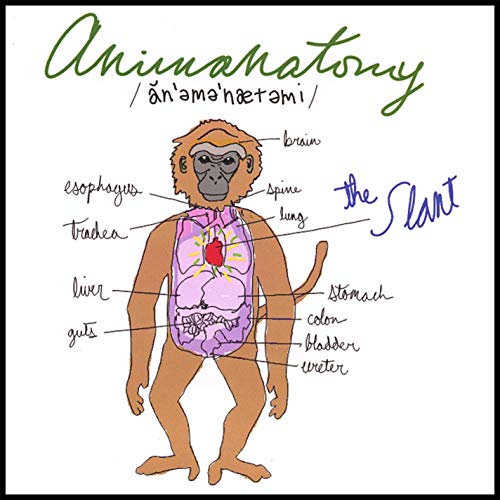 Animanatomy
/ăn'əmə'nætəmi/
brain
esophagus
spine
the Slant
trachea
lung
liver
stomach
guts
colon
bladder
ureter